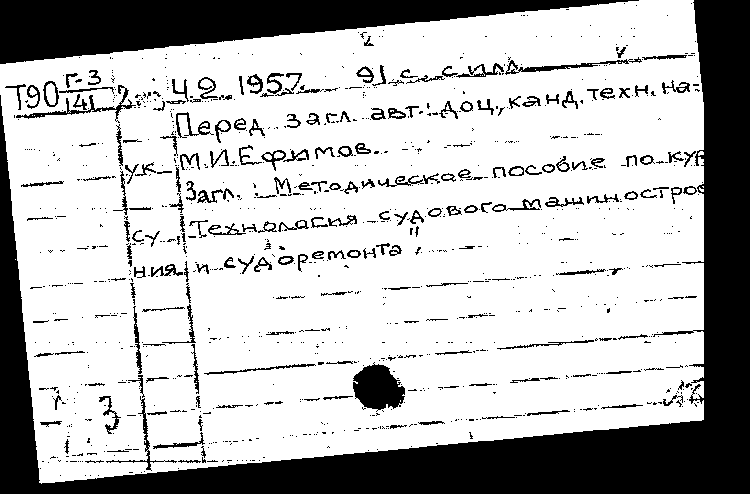 2
Т90 Г-3 141 Ч.2. 1957. 91 с. с илл.
Перед загл. авт.: доц., канд. техн. на-
ук М.И.Ефимов.
Загл.: Методическое пособие по кур
су „Технология судового машиностро
ния и судоремонта"
3